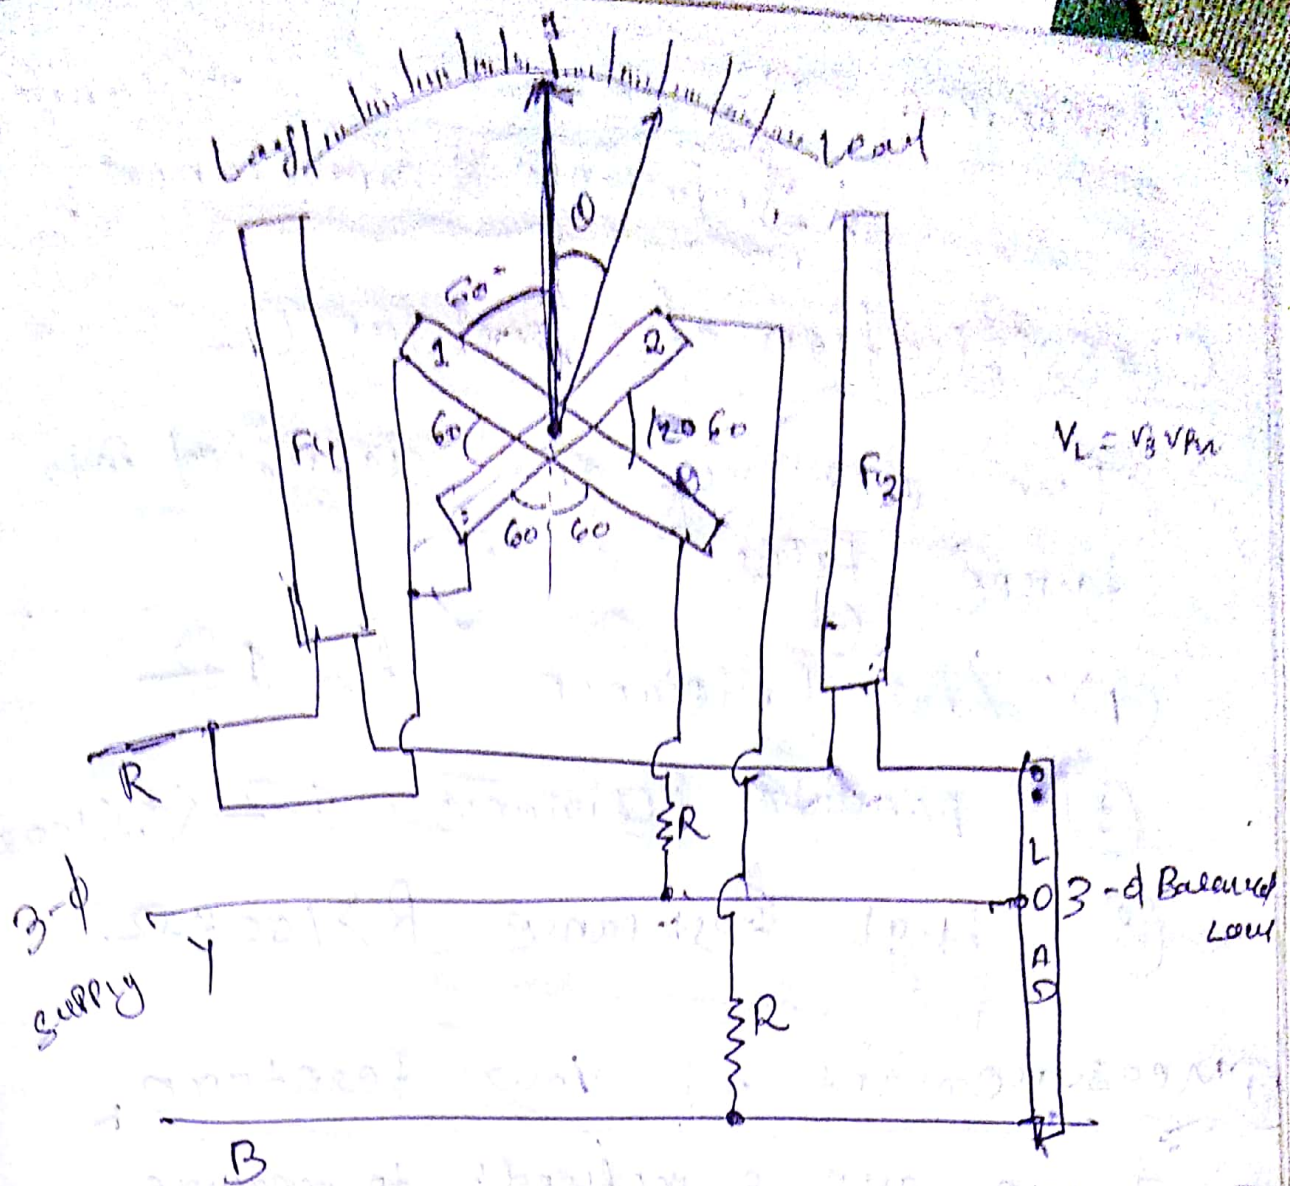 1
Lagg
Lead
θ
60°
1
2
60
120 60
F1
F2
VL = √3 VPh
60 60
R
R
L
O
A
D
3-ϕ Balanced
Load
3-ϕ
supply
Y
R
B